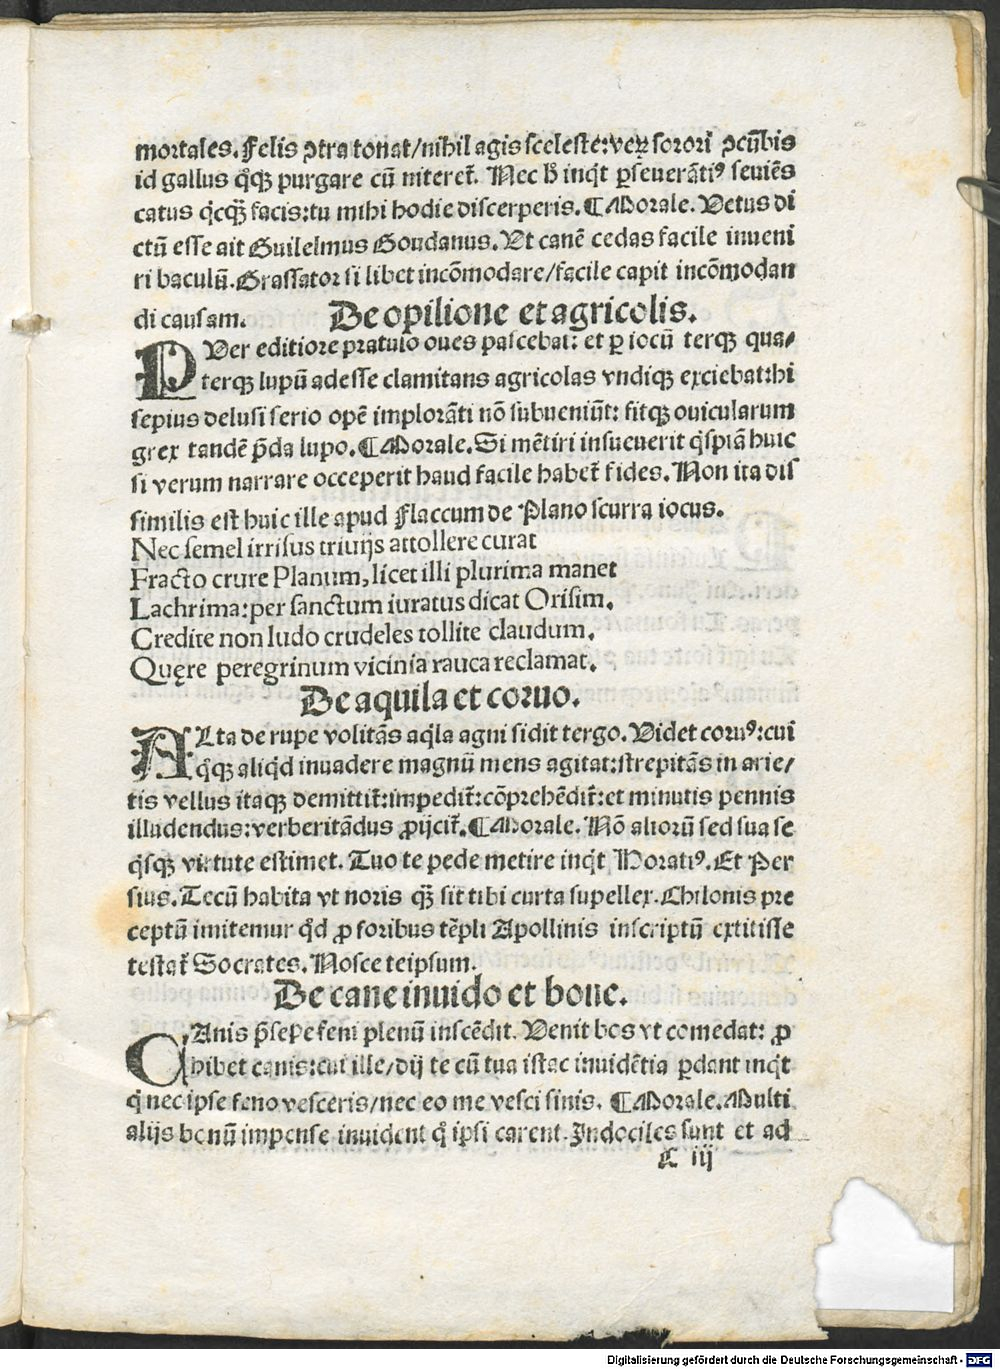 mortales. Felis ↄtra tonat/nihil agis sceleste: veꝝ sorori ꝓcūbis
id gallus q̊qꝫ purgare cū niteret᷑. Nec h̊ inqͥt ꝑseuerātiꝰ seuiēs
catus qͥcqͥd facis: tu mihi hodie discerperis. ¶ Morale. Vetus di
ctū esse ait Guilelmus Goudanus. Vt canē cedas facile inueni
ri baculū. Grassator si libet incōmodare/facile capit incōmodan
di causam. De opilione et agricolis.
PVer editiore pratulo oues pascebat: et ꝑ iocū terqꝫ qua/
terqꝫ lupū adesse clamitans agricolas vndiqꝫ exciebat: hi
sepius delusi serio opē implorāti nō subueniūt: fitqꝫ ouicularum
grex tandē p̄da lupo. ¶ Morale. Si mētiri insueuerit qͥspiā huic
si verum narrare occeperit haud facile habet᷑ fides. Non ita dis
similis est huic ille apud Flaccum de Plano scurra iocus.
Nec semel irrisus triuijs attollere curat
Fracto crure Planum, licet illi plurima manet
Lachrima: per sanctum iuratus dicat Orisim.
Credite non ludo crudeles tollite claudum.
Quęre peregrinum vicinia rauca reclamat.
De aquila et coruo.
ALta de rupe volitās aqͥla agni sidit tergo. Videt coruꝰ: cui
q̊qꝫ aliqͥd inuadere magnū mens agitat: strepitās in arie/
tis vellus itaqꝫ demittit᷑: impedit᷑: cōprehēdit᷑: et minutis pennis
illudendus: verberitādus ꝓijcit᷑. ¶ Morale. Nō aliorū sed sua se
qͥsqꝫ virtute estimet. Tuo te pede metire inqͥt Horatiꝰ. Et Per
sius. Tecū habita vt noris qꝫ̄ sit tibi curta supellex. Chilonis pre
ceptū imitemur qd̊ ꝓ foribus tēpli Apollinis inscriptū extitisse
testat᷑ Socrates. Nosce teipsum.
De cane inuido et boue.
CAnis p̄sepe feni plenū inscēdit. Venit bos vt comedat: ꝓ
hibet canis: cui ille/dij te cū tua istac inuidētia ꝑdant inqͥt
qͥ nec ipse feno vesceris/nec eo me vesci sinis. ¶ Morale. Multi
alijs bonū impense inuident q̊ ipsi carent. Indociles sunt et ad
C iij
Digitalisierung gefördert durch die Deutsche Forschungsgemeinschaft - DFG